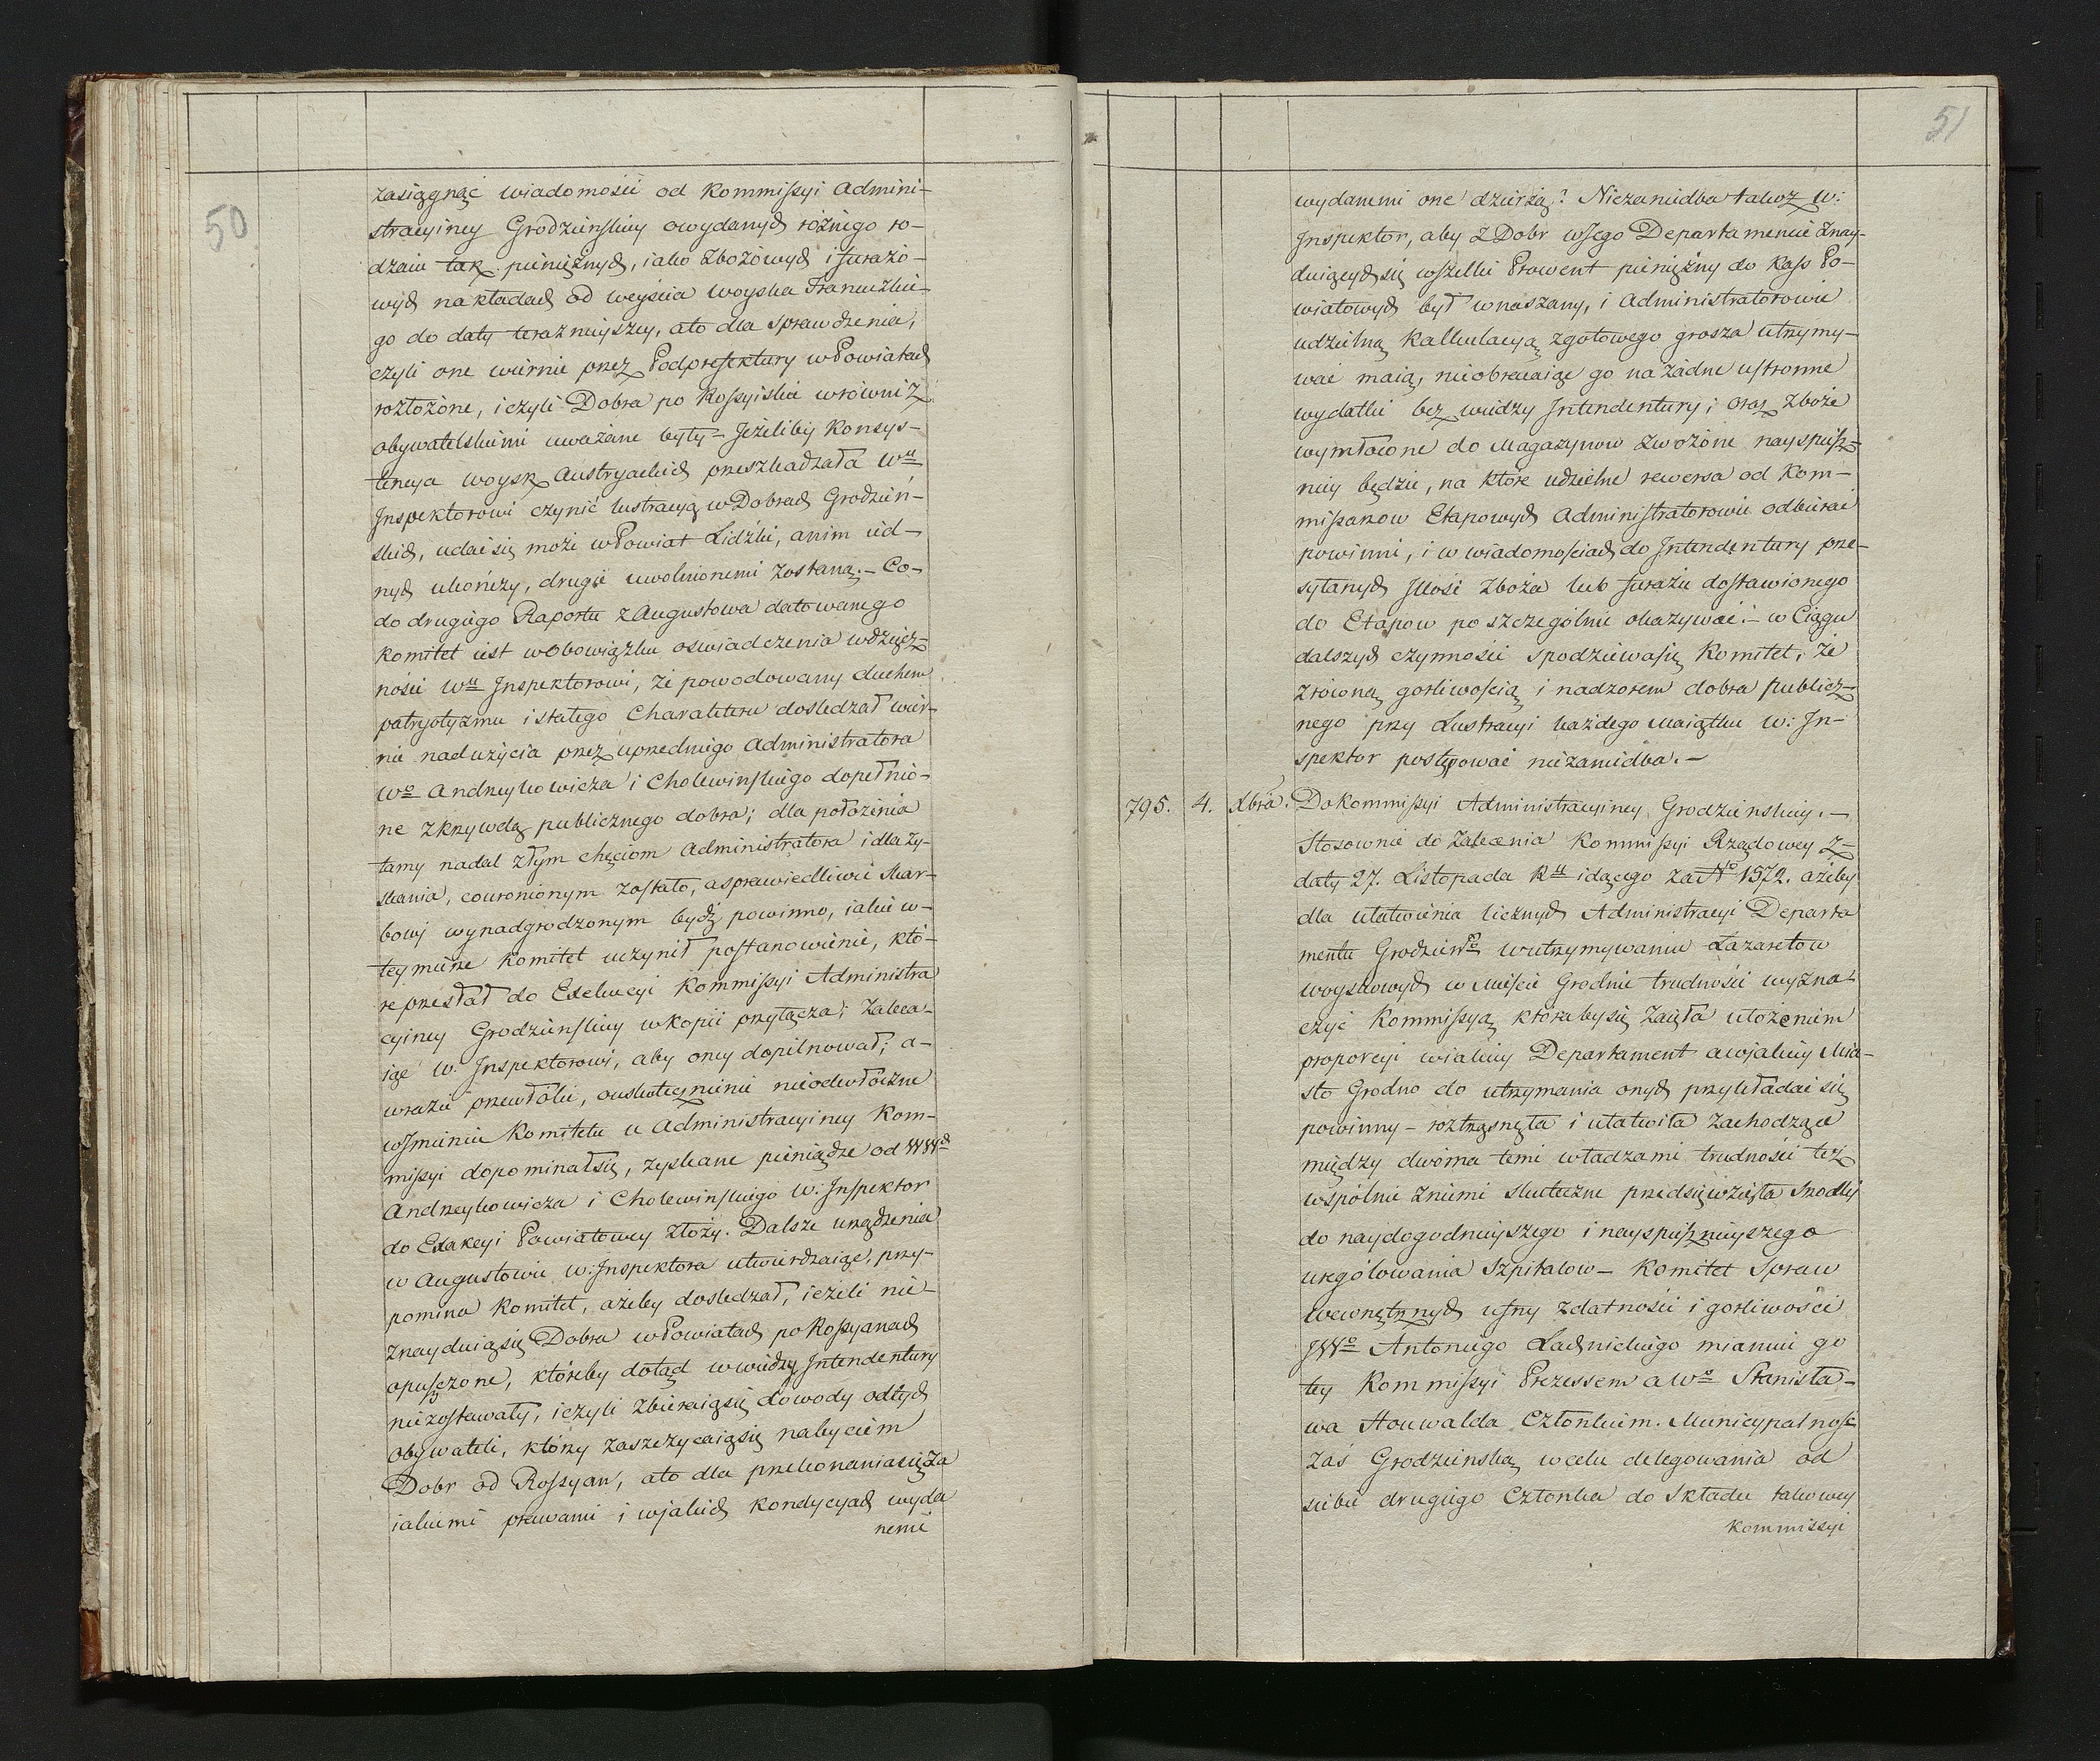 50
zasięgnąć wiadomości od Kommissyi Admini-
stracyiney Grodzieńskiey owydanych różnego ro-
dzaiu tak pieniężnych, iako zbożowych i furażo-
wych nakładach od weyścia woyska Francuzkie-
go do daty teraznieyszey, ato dla sprawdzenia,
czyli one wiernie przez Podprefektury wPowiatach
rozłożone, iczyli Dobra po Rossyiskie wrówni z
obywatelskiemi uważane były - Jeżeliby Konsys-
tencya woysk Austryackich przeszkadzała Wu
Inspektorowi czynić lustracyą wDobrach Grodzień-
skich, udać się może wPowiat Lidzki, anim ied-
nych ukończy, drugie uwolnionemi zostaną. - Co-
do drugiego Raportu zAugustowa datowanego
Komitet iest wobowiązku oswiadczenia wdzięcz-
ności Wu Inspektorowi, że powodowany duchem
patryotyzmu istałego Charakteru dosledzał wier-
nie nadużycia przez uprzedniego Administratora
Wo Andrzeykowicza i Cholewinskiego dopełnio-
ne zkrzywdą publicznego dobra; dla położenia
tamy nadal złym chęciom Administratora idla zy-
skania, couronionym zostało, asprawiedliwie Skar-
bowi wynadgrodzonym bydź powinno, iakie w-
tey mierze Komitet uczynił postanowienie, któ-
re przesłał do Exekucyi Kommissyi Administra
cyiney Grodzieńskiey wkopii przyłącza; zaleca-
iąc W. Inspektorowi, aby oney dopilnował; a-
wrazie przewłoki, ouskutecznienie nieodwłoczne
wImieniu Komitetu u Administracyiney Kom-
missyi dopominałsię, zyskane pieniądze od WWch
Andrzeykowicza i Cholewinskiego W: Inspektor
do Exakcyi Powiatowey złoży. Dalsze urządzenia
w Augustowie W: Inspektora utwierdzaiąc, przy-
pomina Komitet, ażeby dosledzał, ieżeli nie-
znayduiąsię Dobra wPowiatach poRossyanach
opuszczone, któreby dotąd wwiedzy Intendentury
niezostawały, iczyli zbieraiąsię dowody odtych
obywateli, którzy zaszczycaiąsię nabyciem
Dobr od Rossyan, ato dla przekonaniasięza
iakiemi prawami i wjakich kondycyach wyda
nemi
51
wydanemi one dzierżą? Niezaniedba także W:
Inspektor, aby zDobr wJego Departamencie znay-
duiących się wszelki Prowent pieniężny do Kass Po-
wiatowych był wnaszany, i Administratorowie
udzielną Kalkulacyą zgotowego grosza utrzymy-
wać maią, nieobracaiąc go na żadne ustronne
wydatki bez wiedzy Intendentury; oraz zboże
wymłócone do Magazynow zwożone nayspiesz-
niey będzie, na które udzielne rewersa od Kom-
missarzow Etapowych Administratorowie odbierać
powinni, i w wiadomościach do Intendentury prze-
syłanych Ilość zboża lub furażu dostawionego
do Etapow poszczególnie okazywać. - w Ciągu
dalszych czynności spodziewasię Komitet, że
zrówną gorliwością i nadzorem dobra publicz-
nego przy Lustracyi każdego Maiątku W: In-
spektor postępować niezaniedba. -
795. 4. Xbra. Do Kommissyi Administracyiney Grodzieńskiey. -
Stosownie do Zalecenia Kommissyi Rządowey z-
daty 27. Listopada Ru idącego za No 1572. ażeby
dla ułatwienia licznych Administracyi Departa
mentu Grodzieńgo wutrzymywaniu Lazaretow
woyskowych w Mieście Grodnie trudności wyzna-
czyć Kommissyą, któraby się zaięła ułożeniem
proporcyi wiakiey Departament awjakiey Mia-
sto Grodno do utrzymania onych przykładać się
powinny - roztrząsnęła i ułatwiła zachodzące
między dwóma temi władzami trudności też
wspólnie zniemi skuteczne przedsięwzięła Srodki
do naydogodnieyszego i nayspiesznieyszego
uregulowania Szpitalow - Komitet Spraw
wewnętrznych ufny zdatności i gorliwości
JWo Antoniego Lachnickiego mianuie go
tey Kommissyi Prezessem a Wo Stanisła-
wa Houwalda Członkiem. Municypalnosć
zaś Grodzieńską wcelu delegowania od
siebie drugiego Członka do Składu takowey
Kommissyi